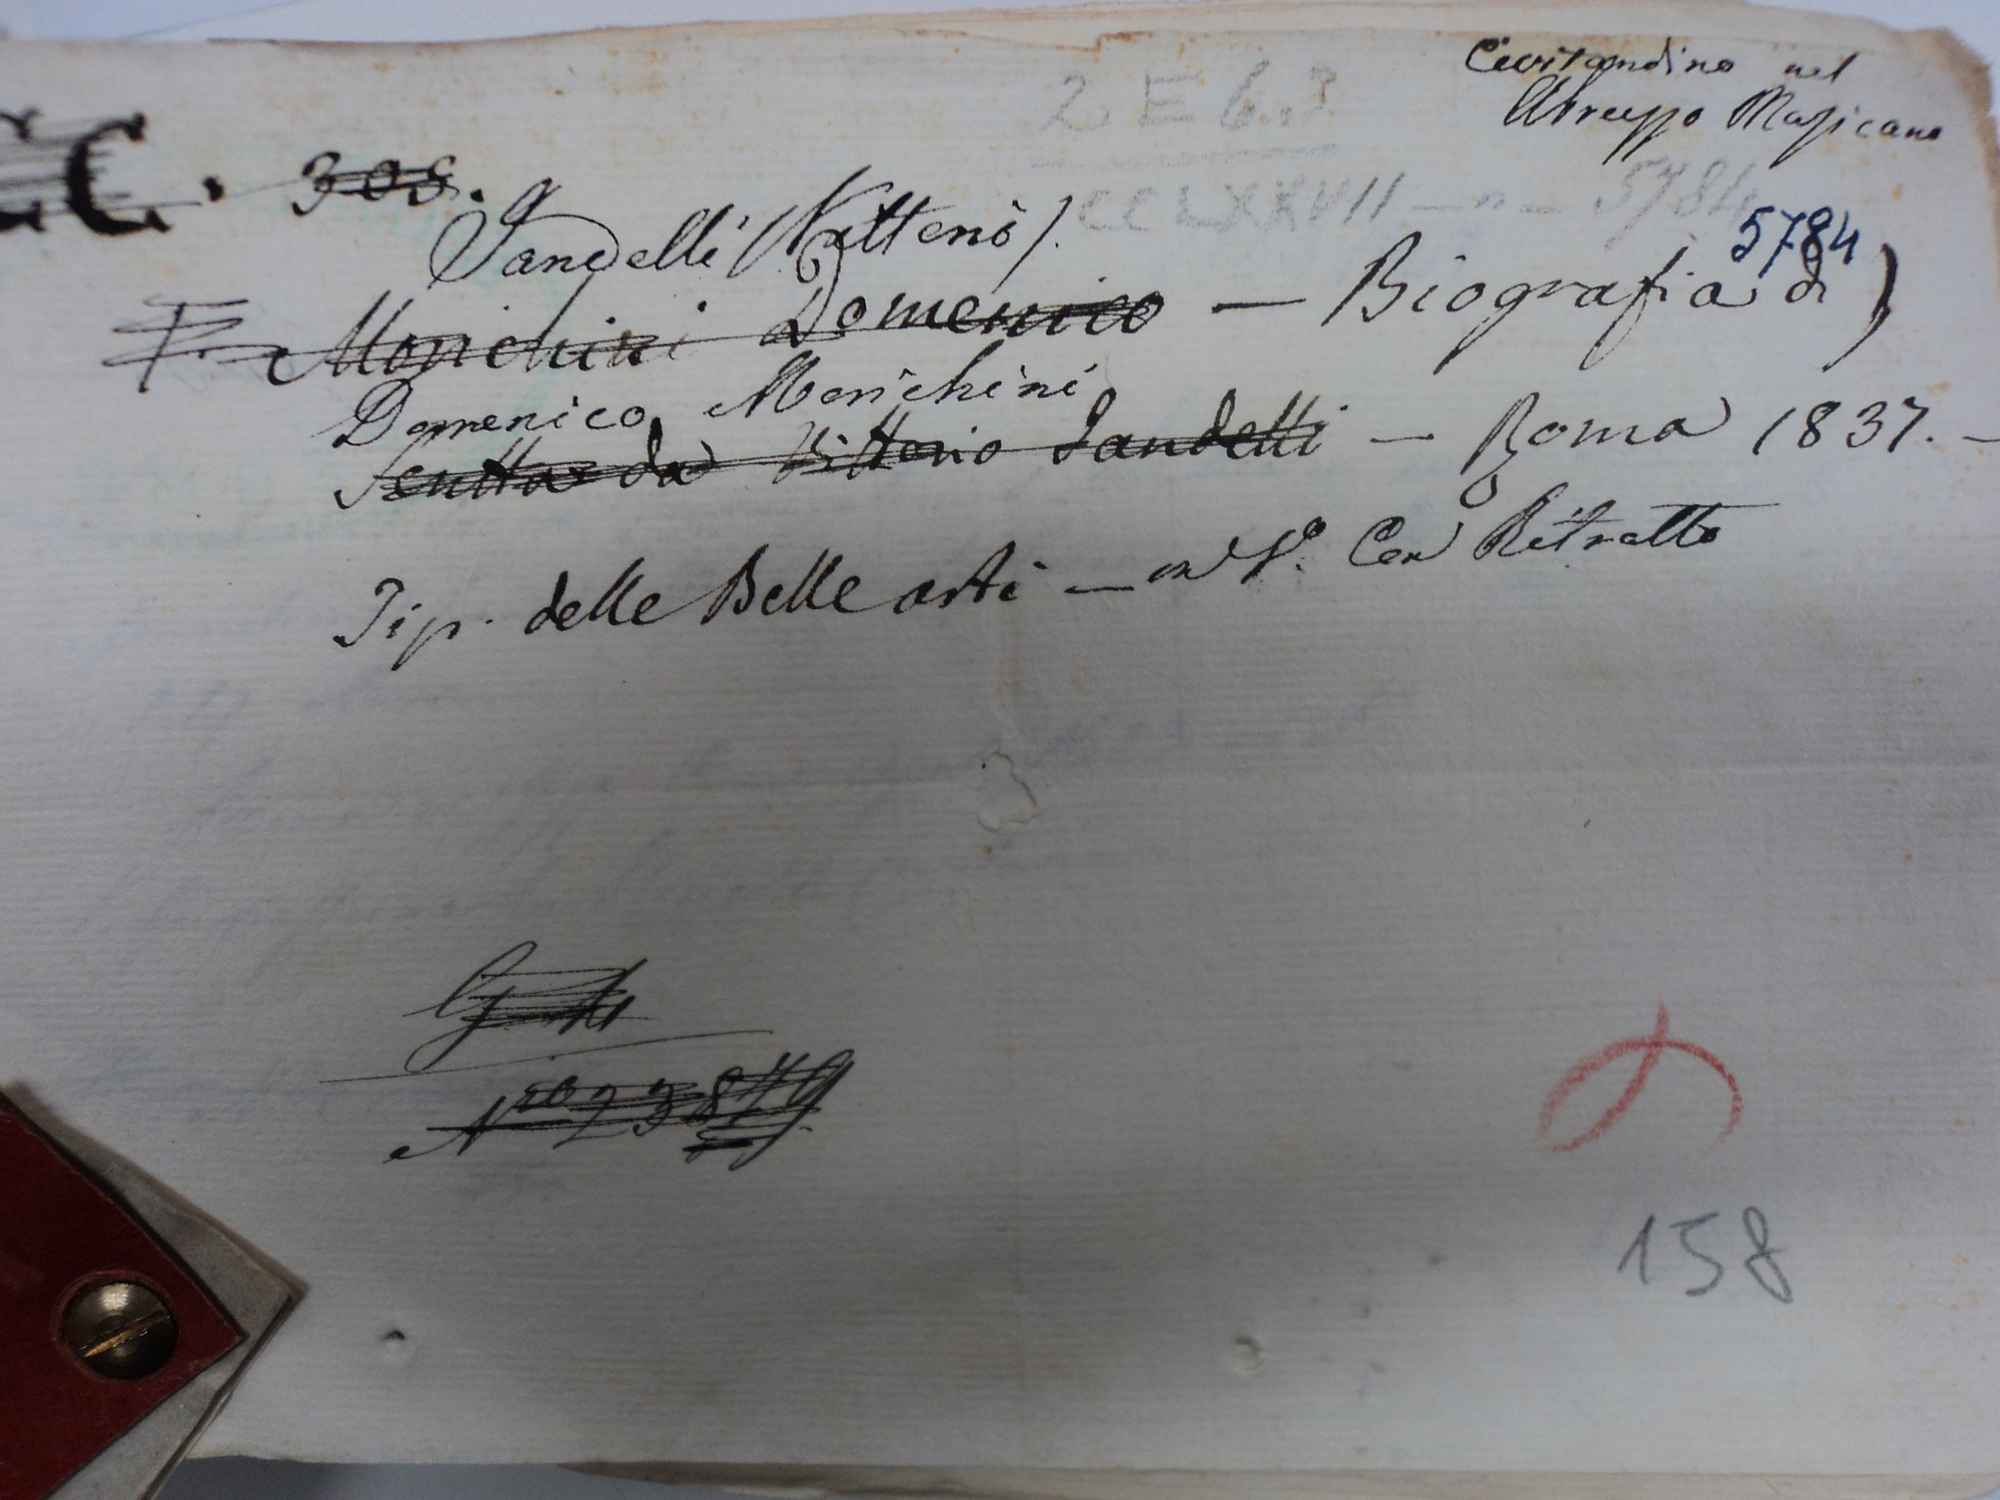 Civitandino nel
Abruzzo Marsicano
2 E 6.
CC. 308.
CCLXXVII - n - 5784
5784
Sandelli (Vittorio).
Morichini Domenico — Biografia di
Domenico Morichini
Scritta da Vittorio Sandelli — Roma 1837. —
Tip. delle Belle arti — in 8º. Con Ritratto
Nro 23849
158